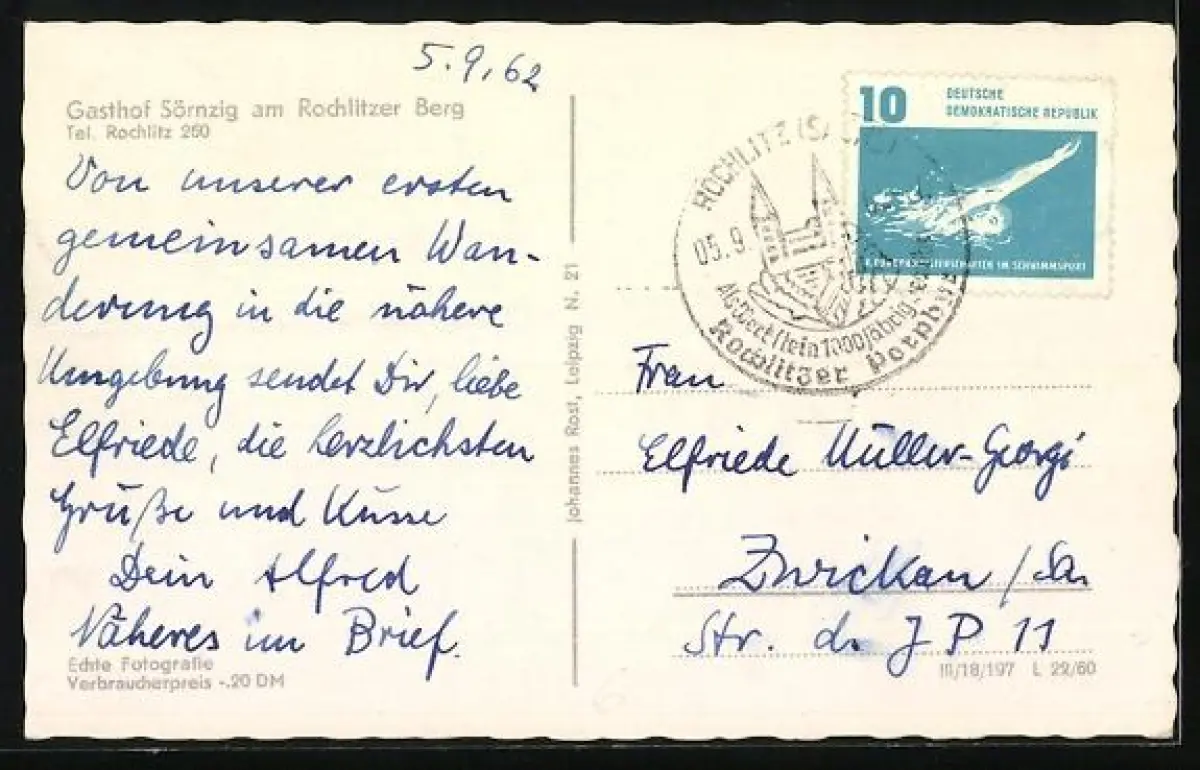 5.9.62
Gasthof Sörnzig am Rochlitzer Berg
Tel. Rochlitz 260
Von unserer ersten
gemeinsamen Wan-
derung in die nähere
Umgebung sendet Dir, liebe
Elfriede, die herzlichsten
Grüße und Küsse
Dein Alfred
Näheres im Brief.
Echte Fotografie
Verbraucherpreis -.20 DM
Johannes Rost, Leipzig N. 21
10
DEUTSCHE
DEMOKRATISCHE REPUBLIK
IM SCHWIMMSPORT
ROCHLITZ
05.9.
Als Werkstein 1000jährig
Rochlitzer Porphyr
Frau
Elfriede Müller-Georgi
Zwickau / Sa.
Str. d. J P 11
III/18/197 L 22/60